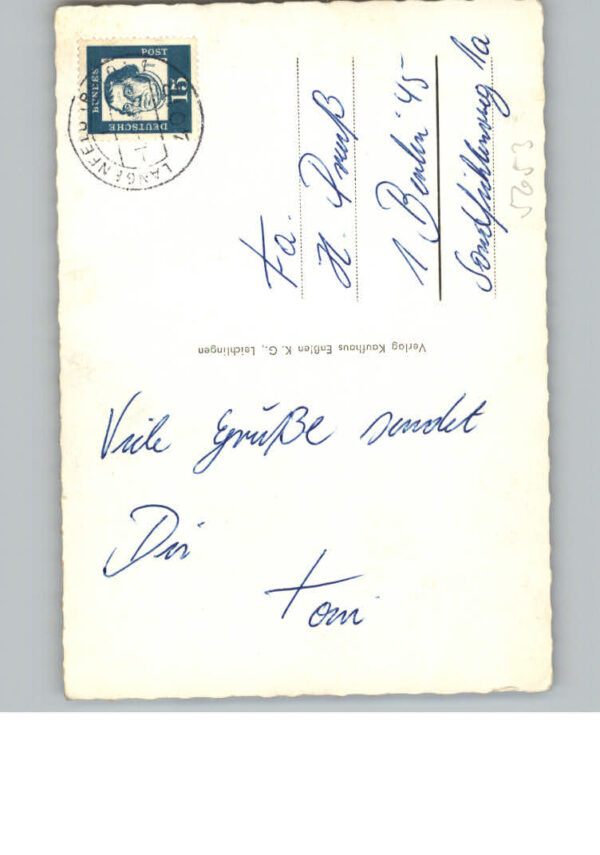 DEUTSCHE
BUNDES
POST
15
LANGENFELD
Fa.
H. Preuß
1 Berlin 45
1a
5653
Verlag Kaufhaus Enßlen K. G., Leichlingen
Viele Grüße sendet
Dir
Toni